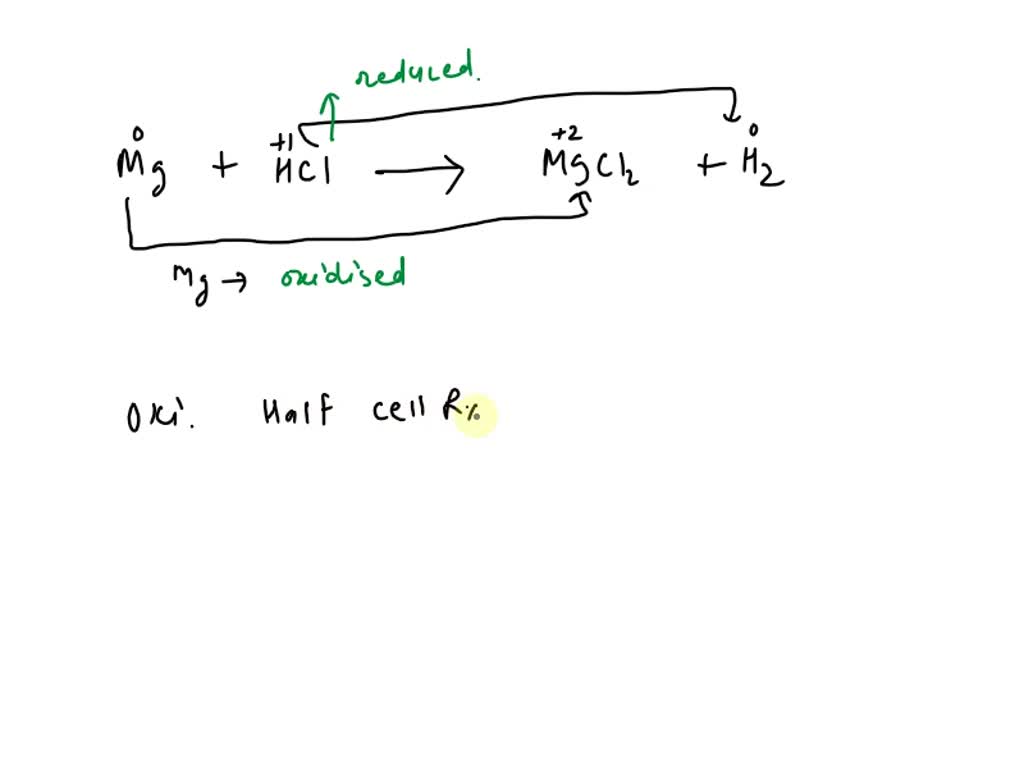 reduced.
0 +1 +2 0
Mg + HCl → MgCl2 + H2
Mg → oxidised
Oxi. Half cell R%